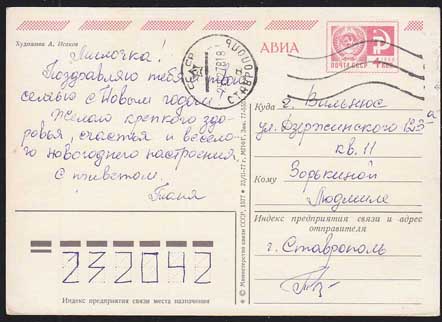 Художник А. Исаков
АВИА
ПОЧТА СССР
4 коп
Милочка!
Поздравляю тебя с твоей
семьею с Новым годом
Желаю крепкого здо-
ровья, счастья и весело-
го новогоднего настроения.
С приветом.
Таня
СССР
СТАВРОПОЛЬ
Куда г. Вильнюс
ул. Дзержинского 133а
кв. 11
Кому Зорькиной
Людмиле
Индекс предприятия связи и адрес
отправителя
г. Ставрополь
232042
Индекс предприятия связи места назначения
© Министерство связи СССР, 1977